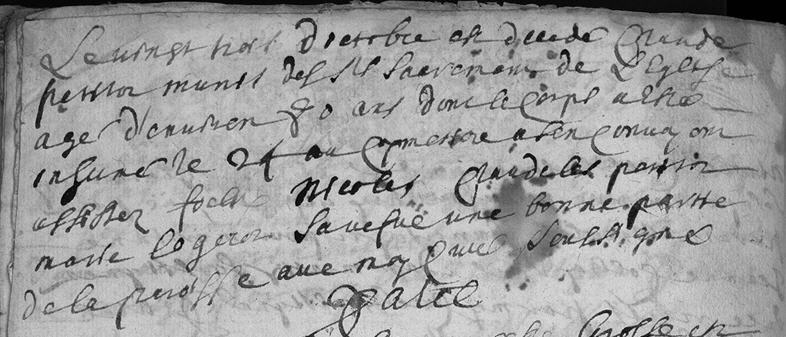 Le vingt trois d'octobre est decede Claude
petitot munis des Sts Sacremens de L'Eglise
age d'environ 80 ans dont le corps a este
inhume le 24 au cymettre a son Convoy ont
assister Nicolas Claude les petitot
marie logerot sa vefve une bonne partie
de la peroisse avec moy Curé soussigné